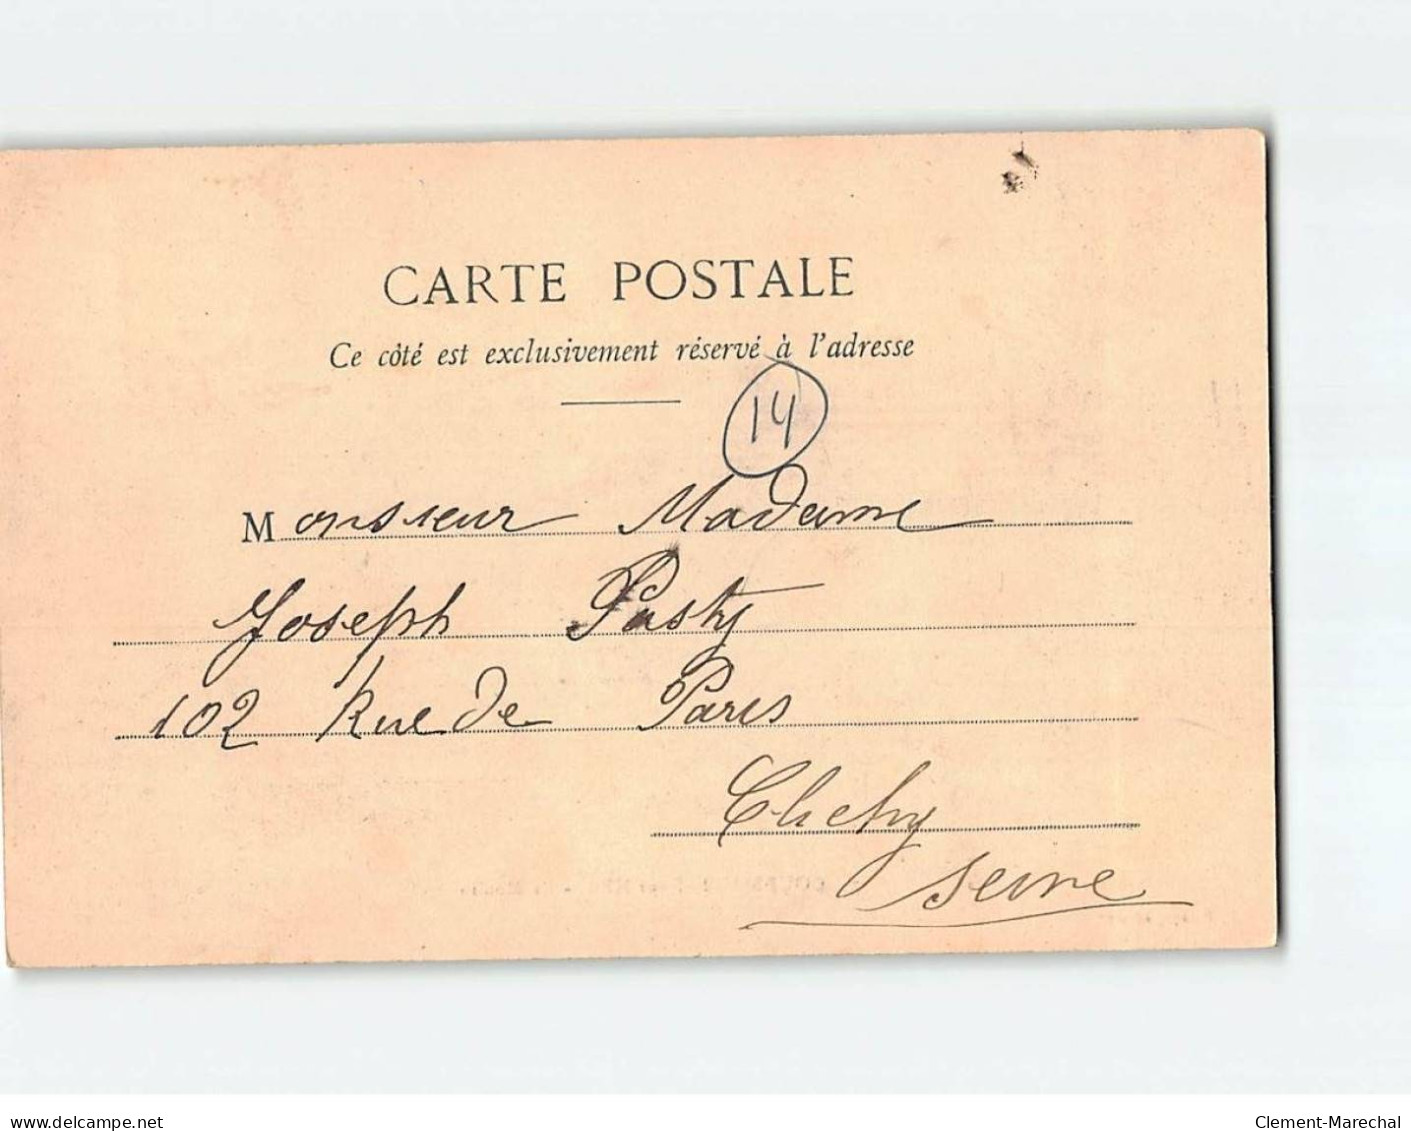 CARTE POSTALE
Ce côté est exclusivement réservé à l'adresse
14
Monsieur Madame
Joseph Pasty
102 Rue de Paris
Clichy
Seine
delcampe.net
Clement-Marechal